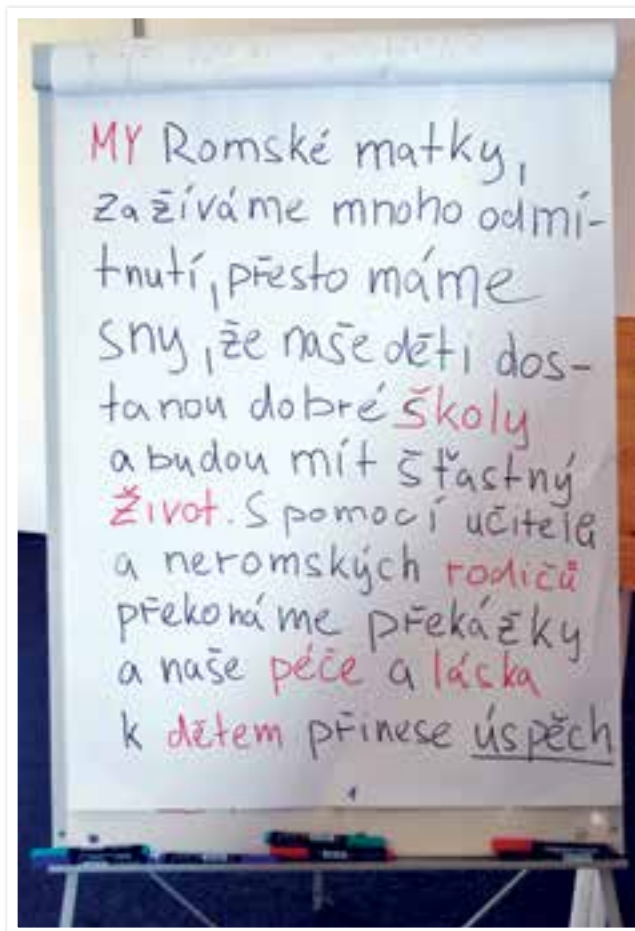 MY Romské matky,
zažíváme mnoho odmí-
tnutí, přesto máme
sny, že naše děti dos-
tanou dobré školy
a budou mít šťastný
život. S pomocí učitelů
a neromských rodičů
překonáme překážky
a naše péče a láska
k dětem přinese úspěch